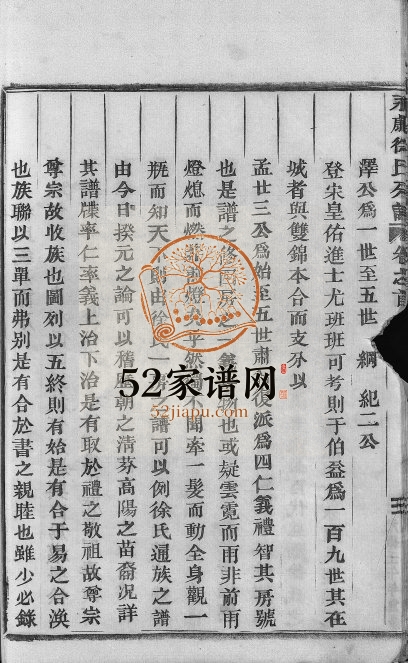 澤公為一世至五世 綱 紀二公
登宋皇佑進士尤班班可考則于伯益為一百九世其在
城者與雙錦本合而支分以
孟廿三公為始至五世肅 後派為四仁義禮智其房號
也是譜之修同房之 義 物也或疑雲霓而雨非前雨
燈熄而燃 前燈 乎然 不聞牽一髮而動全身觀一
瓶而知天 則由徐氏一房之譜可以例徐氏通族之譜
由今日揆元之論可以稽歷朝之清芬高陽之苗裔況詳
其譜牒率仁率義上治下治是有取於禮之敬祖故尊宗
尊宗故收族也圖列以五終則有始是有合于易之合渙
也族聯以三單而弗別是有合於書之親睦也雖少必錄
永康徐氏宗譜 卷之首
52家谱网
52jiapu.com